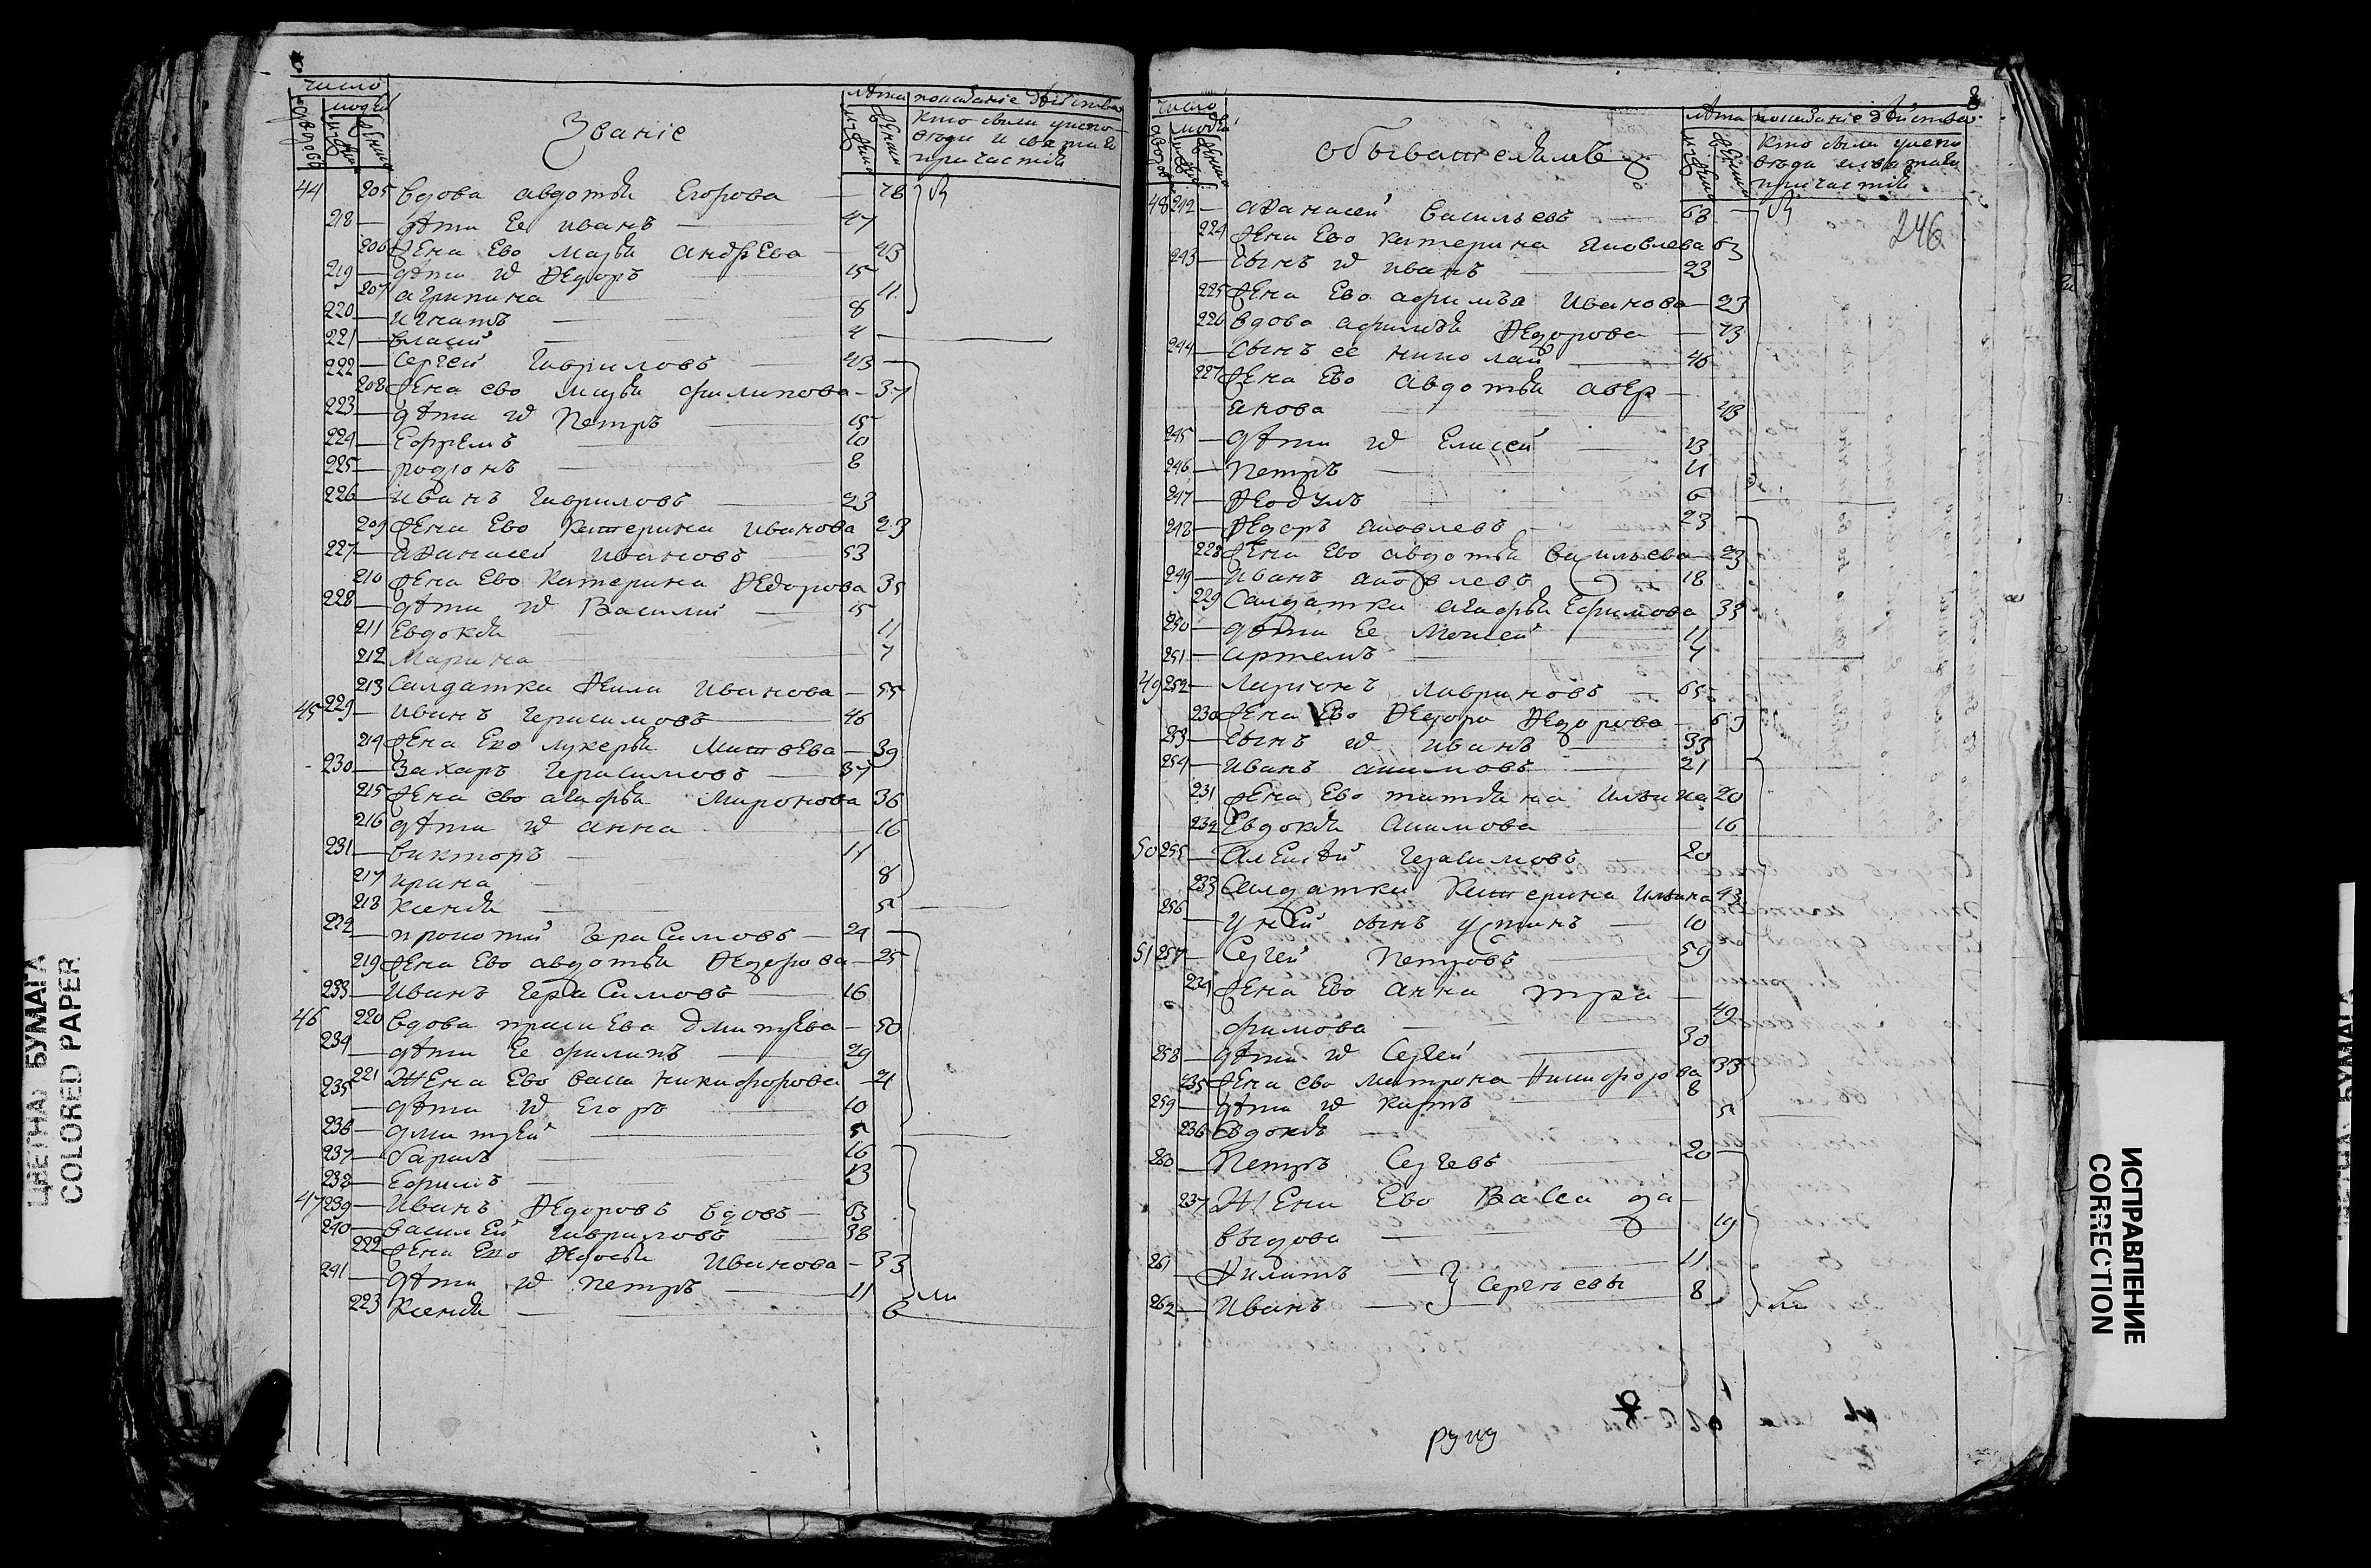 число
людей
дворовъ
мужска
женска
Званіе
лѣта
мужска
женска
показаніе дѣйства
кто были у испо-
вѣди и святаго
причастія
44 205 вдова авдотья Егорова — 78
218 — дѣти Ее иванъ — 47
206 жена Ево марья андрѣева — 43
219 — дѣти их Федоръ — 15
207 агрипина — 11
220 — игнатъ — 8
221 — власий — 4
222 — Сергей Гавриловъ — 43
208 жена ево марья филипова — 37
223 — дѣти их Петръ — 15
224 — Ефремъ — 10
225 — родионъ — 8
226 — Иванъ Гавриловъ — 23
209 жена Ево Катерина иванова 23
227 — афанасей ивановъ — 53
210 жена Ево катерина Федорова 35
228 — дѣти их Василий — 15
211 Евдокия — 11
212 Марина — 7
213 Салдатка Фекла иванова — 55
45 229 — иванъ герасимовъ — 46
214 жена Ево лукерья Матвѣева — 39
230 — Захаръ герасимовъ — 37
215 жена ево агафья Миронова 36
216 дѣти их анна — 16
231 — викторъ — 11
217 ирина — 8
218 ксения — 5
232 — прокофий герасимовъ — 24
219 жена Ево авдотья Федорова — 25
233 — Иванъ герасимовъ — 16
46 220 вдова прасковья дмитрѣева — 50
234 — дѣти Ее филипъ — 29
221 Жена Ево васа никифорова — 24
235 — дѣти их Егоръ — 10
236 — дмитрѣй — 5
237 — Гарилъ — 16
238 — Ефимъ — 13
47 239 — Иванъ Федоровъ вдовъ — 63
240 — василей гавриловъ — 38
222 жена Ево Федосья Иванова — 33
241 — дѣти их петръ — 11
223 Ксения — 6
8
число
людей
дворовъ
мужска
женска
обывателямъ
лѣта
мужска
женска
показаніе дѣйства
кто были у испо
вѣди и святаго
причастія
246
48 242 — афанасей васильевъ — 63
224 жена Ево катерина Яковлева 63
243 — сынъ их иванъ — 23
225 жена Ево афимья Иванова — 23
226 вдова афимья Федорова — 73
244 — сынъ ее николай — 46
227 жена Ево авдотья авер-
янова — 43
245 — дѣти их Елисей — 13
246 — петръ — 11
247 — Феодулъ — 6
248 — Федоръ яковлевъ — 23
228 жена Ево авдотья васильева — 23
249 — иванъ яковлевъ — 18
229 Салдатка агафья Ефимова 33
250 — дѣти Ее Моисей — 11
251 — артемъ — 7
49 252 — Ларионъ лавриновъ — 65
230 жена Ево Федора Федорова — 63
253 — сынъ их иванъ — 33
254 — иванъ акимовъ — 21
231 жена Ево татияна ильина 20
232 Евдокия акимова — 16
50 255 — Алексѣй герасимовъ — 20
233 Салдатка Катерина ильина 43
256 — у ней сынъ устинъ — 10
51 257 — Сергей Петровъ — 59
234 жена Ево анна тра-
фимова — 49
258 — дѣти их Сергей — 30
235 жена ево матрона Никифорова 33
259 — дѣти их карпъ — 8
236 Евдокия — 5
260 — Петръ Сергевъ — 20
237 Жена Ево Васса да-
выдова — 19
261 — Филипъ — 11
Сергѣевы
262 — Иванъ — 8
руку
ЦВЕТНАЯ БУМАГА
COLORED PAPER
ИСПРАВЛЕНИЕ
CORRECTION